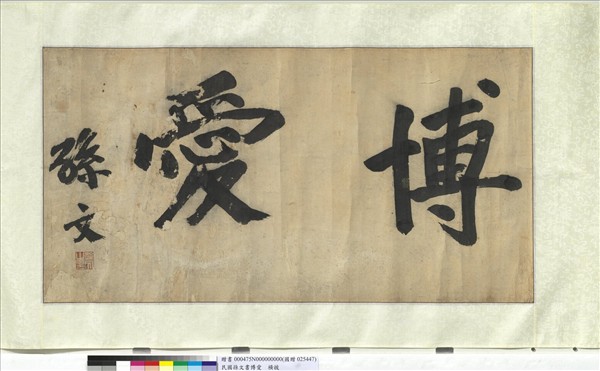 博愛
孫文
贈書 000475N000000000(國贈 025447)
民國孫文書博愛 橫披